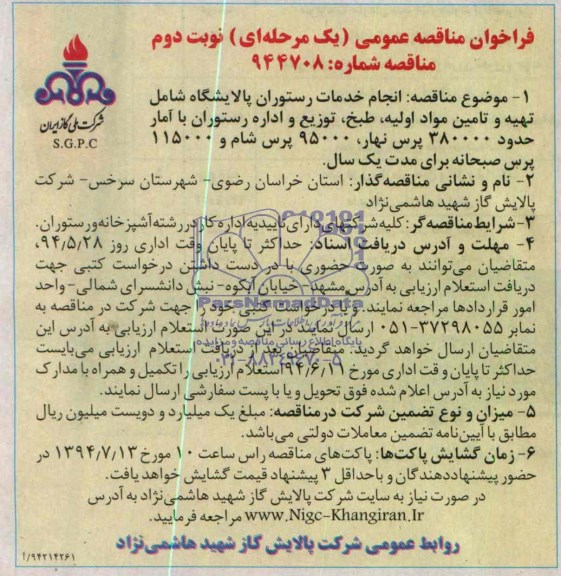 فراخوان مناقصه عمومی (یک مرحله‌ای) نوبت دوم
مناقصه شماره: ۹۴۴۷۰۸
شرکت ملی گاز ایران
S.G.P.C
۱- موضوع مناقصه: انجام خدمات رستوران پالایشگاه شامل
تهیه و تامین مواد اولیه، طبخ، توزیع و اداره رستوران با آمار
حدود ۳۸۰۰۰۰ پرس نهار، ۹۵۰۰۰ پرس شام و ۱۱۵۰۰۰
پرس صبحانه برای مدت یک سال.
۲- نام و نشانی مناقصه‌گذار: استان خراسان رضوی- شهرستان سرخس- شرکت
پالایش گاز شهید هاشمی‌نژاد
۳- شرایط مناقصه‌گر: کلیه شرکتهای دارای تاییدیه اداره کار در رشته آشپزخانه و رستوران.
۴- مهلت و آدرس دریافت اسناد: حداکثر تا پایان وقت اداری روز ۹۴,۵/۲۸،
متقاضیان می‌توانند به صورت حضوری با در دست داشتن درخواست کتبی جهت
دریافت استعلام ارزیابی به آدرس مشهد- خیابان آبکوه- نبش دانشسرای شمالی- واحد
امور قراردادها مراجعه نمایند. و یا درخواست کتبی خود را جهت شرکت در مناقصه به
نمابر ۳۷۲۹۸۰۵۵-۰۵۱ ارسال نمایند در این صورت استعلام ارزیابی به آدرس این
متقاضیان ارسال خواهد گردید. متقاضیان بعد از دریافت استعلام ارزیابی می‌بایست
حداکثر تا پایان و قت اداری مورخ ۹۴/۶/۱۱ استعلام ارزیابی را تکمیل و همراه با مدارک
مورد نیاز به آدرس اعلام شده فوق تحویل و یا با پست سفارشی ارسال نمایند.
۵- میزان و نوع تضمین شرکت در مناقصه: مبلغ یک میلیارد و دویست میلیون ریال
مطابق با آیین‌نامه تضمین معاملات دولتی می‌باشد.
۶- زمان گشایش پاکت‌ها: پاکت‌های مناقصه راس ساعت ۱۰ مورخ ۱۳۹۴/۷/۱۳ در
حضور پیشنهاددهندگان و باحداقل ۳ پیشنهاد قیمت گشایش خواهد یافت.
در صورت نیاز به سایت شرکت پالایش گاز شهید هاشمی‌نژاد به آدرس
www.Nigc-Khangiran.Ir مراجعه فرمایید.
روابط عمومی شرکت پالایش گاز شهید هاشمی‌نژاد
۹۴۲۱۴۲۶۱/آ
ParsNamadData
پایگاه اطلاع رسانی مناقصه و مزایده